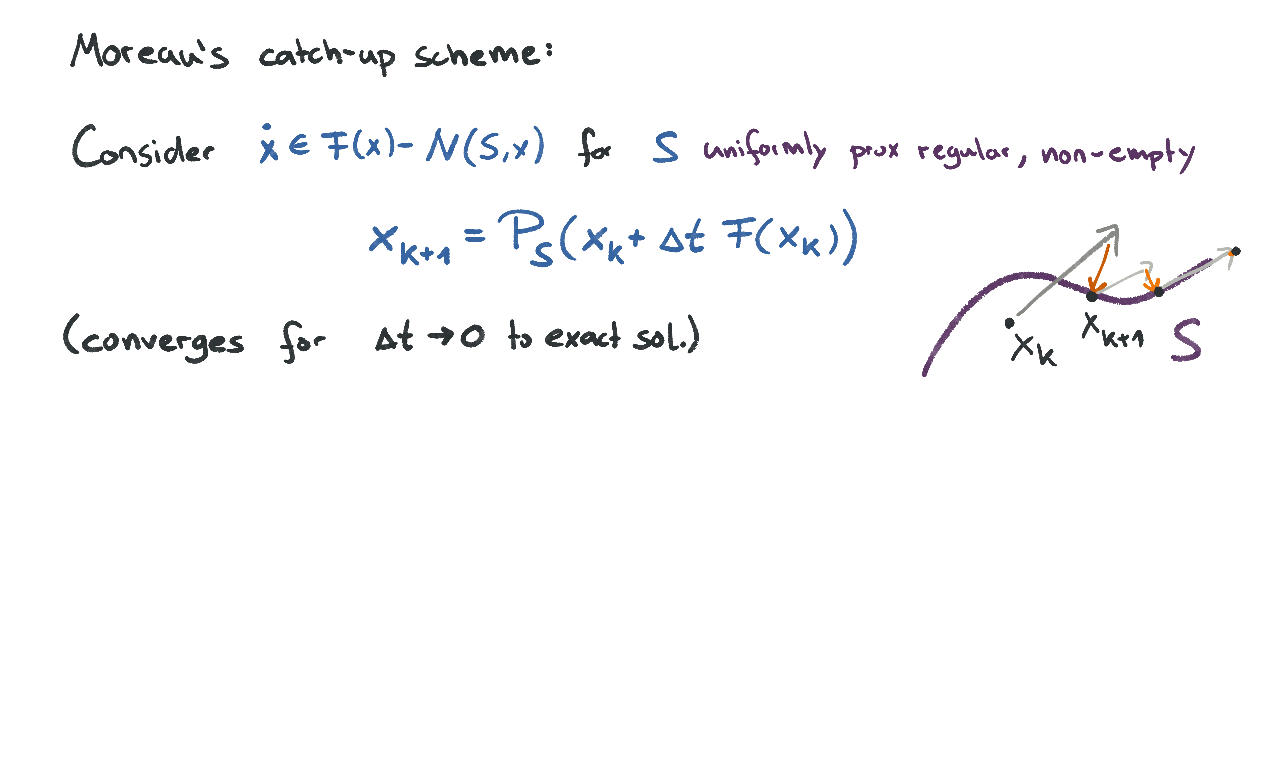 Moreau's catch-up scheme:
Consider ẋ ∈ F(x) - N(S,x) for S uniformly prox regular, non-empty
x_{k+1} = P_S(x_k + Δt F(x_k))
(converges for Δt → 0 to exact sol.)
x_k
x_{k+1}
S